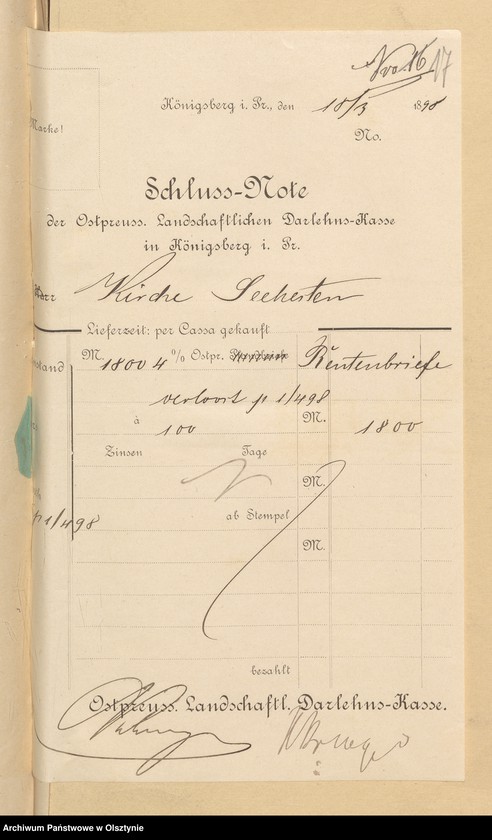 No 16 17
Marke!
Königsberg i. Pr., den 18/3 1898
No.
Schluss-Note
der Ostpreuss. Landschaftlichen Darlehns-Kasse
in Königsberg i. Pr.
Herr Kirche Seehesten
Lieferzeit: per Cassa gekauft
stand M. 1800 4 % Ostpr. Rentenbriefe
verloost p 1/4 98
à 100 M. 1800
Zinsen Tage
M.
ab Stempel
p 1/4 98
M.
bezahlt
Ostpreuss. Landschaftl. Darlehns-Kasse.
Archiwum Państwowe w Olsztynie